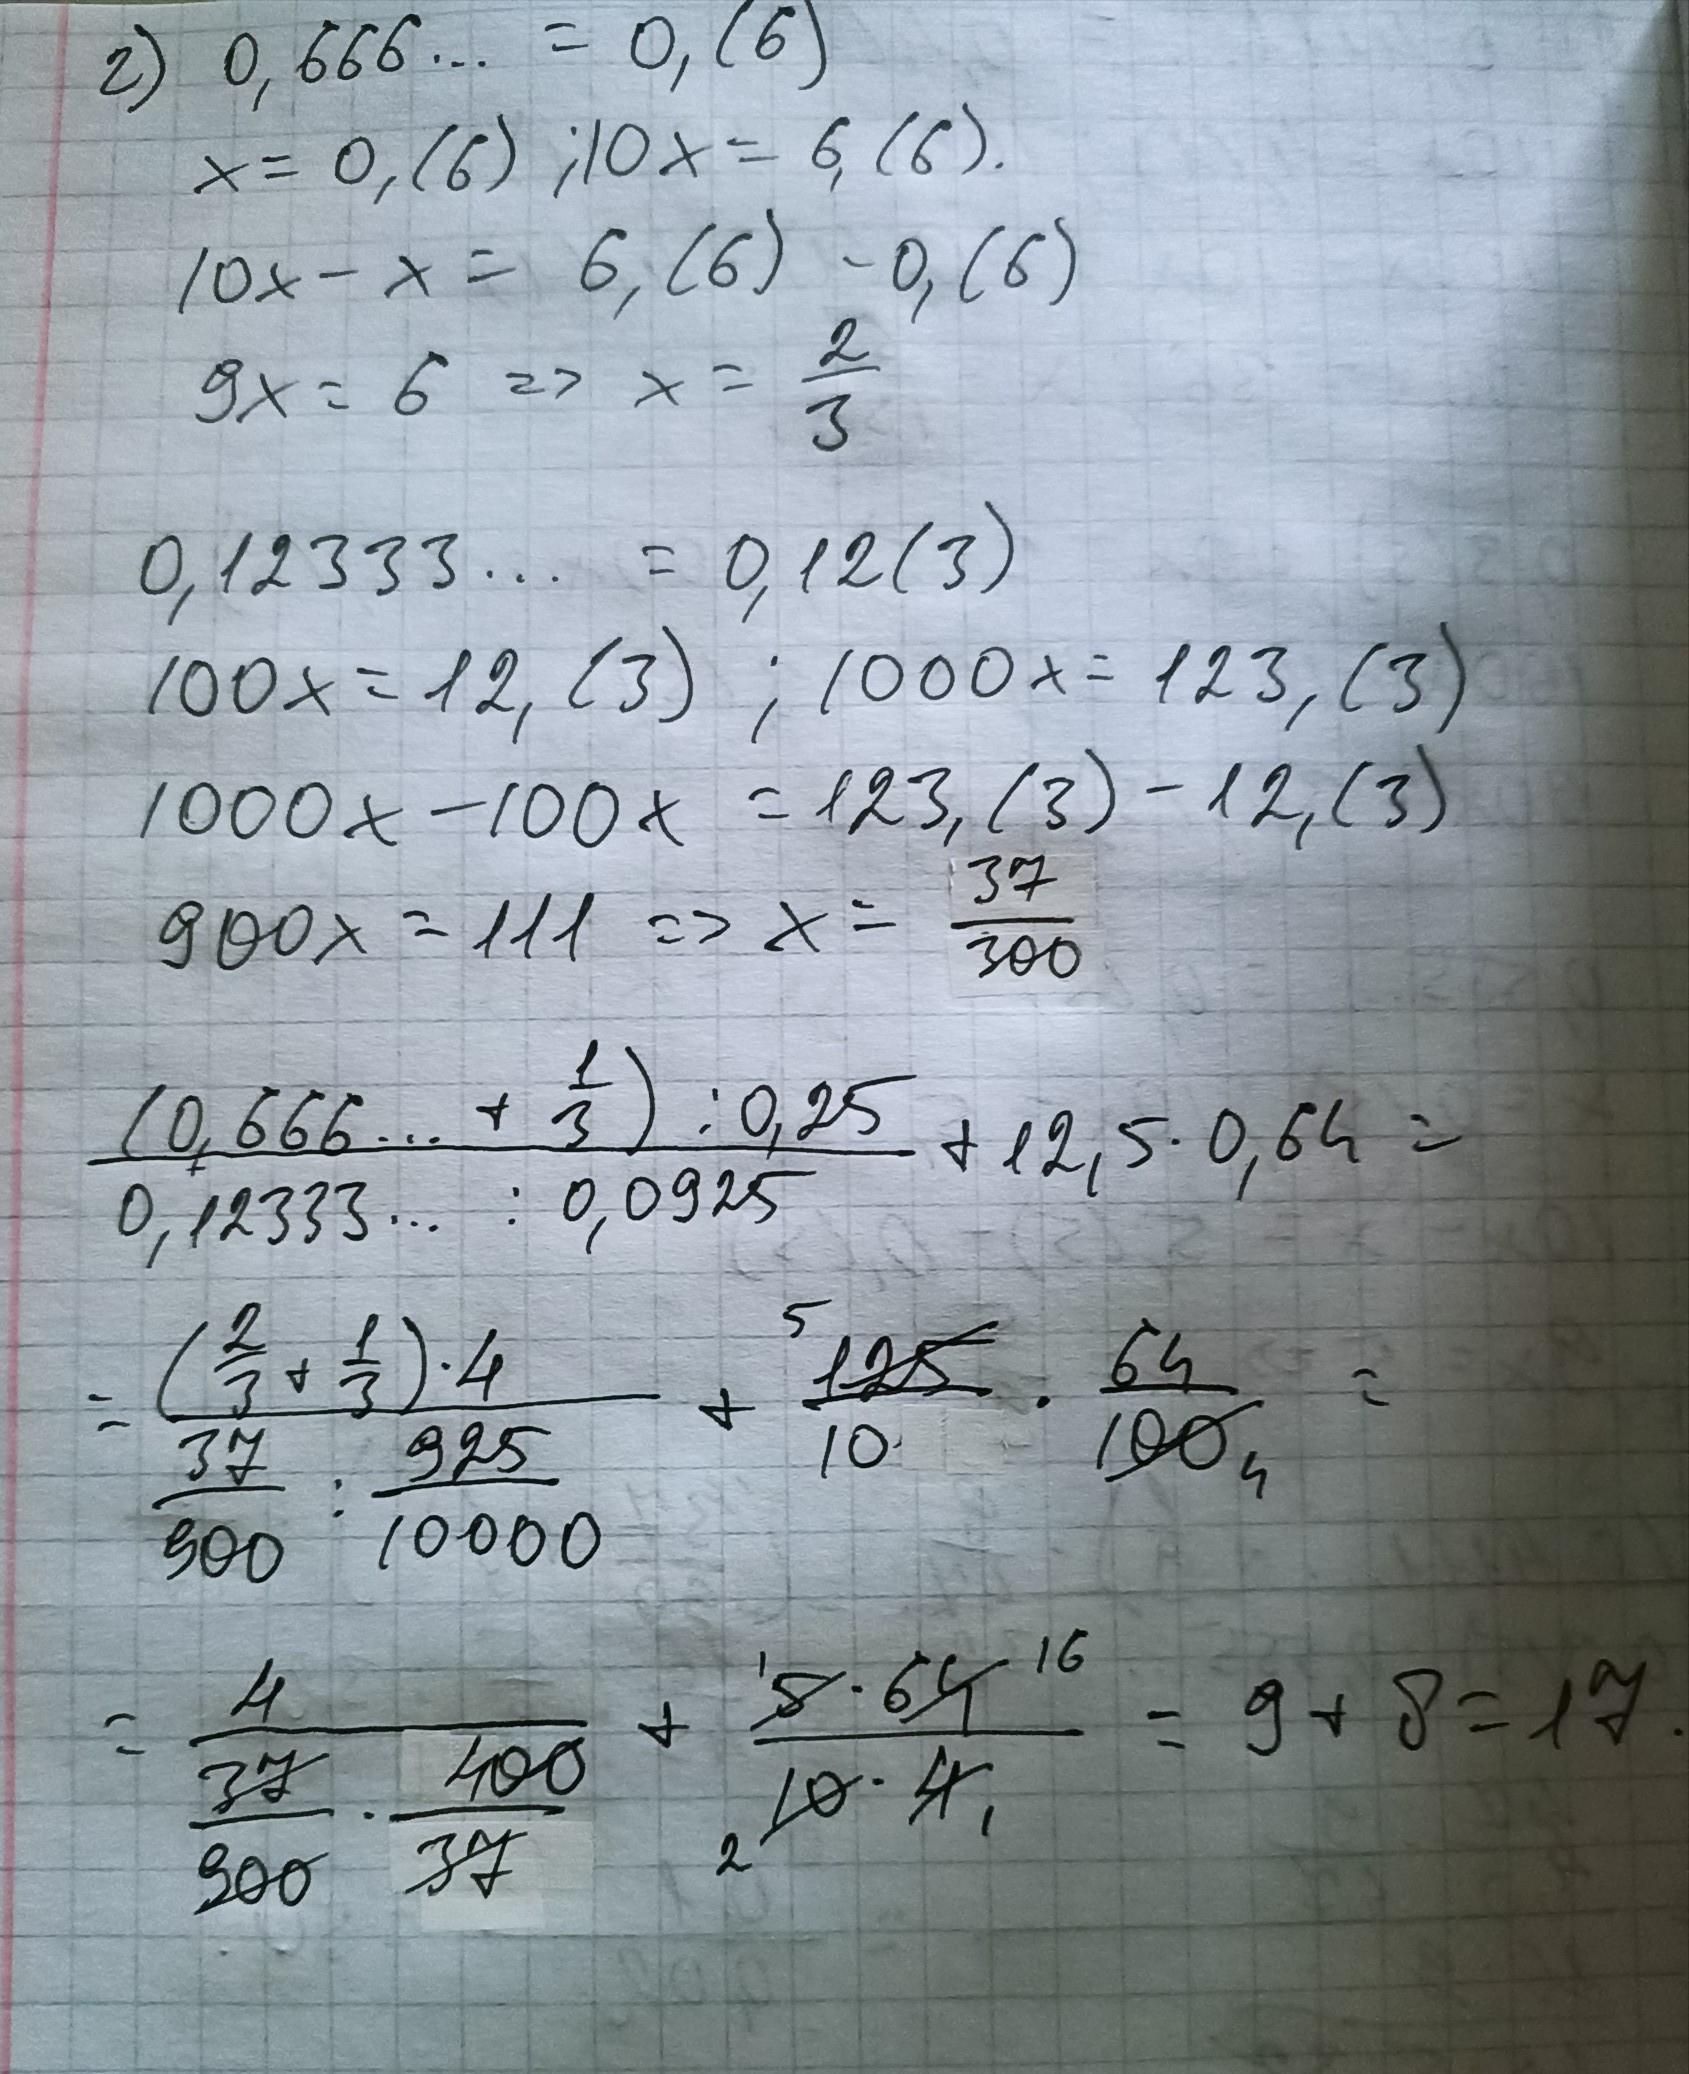 2) 0,666... = 0,(6)
x = 0,(6) ; 10x = 6,(6).
10x - x = 6,(6) - 0,(6)
9x = 6 => x = 2/3
0,12333... = 0,12(3)
100x = 12,(3) ; 1000x = 123,(3)
1000x - 100x = 123,(3) - 12,(3)
900x = 111 => x = 37/300
((0,666... + 1/3) : 0,25)/(0,12333... : 0,0925) + 12,5 · 0,64 =
= ((2/3 + 1/3) · 4)/(37/900 : 925/10000) + 5 125/10 · 64/100 4 =
= 4/(37/900 · 400/37) + (1 5 · 64 16)/(2 10 · 4 1) = 9 + 8 = 17.